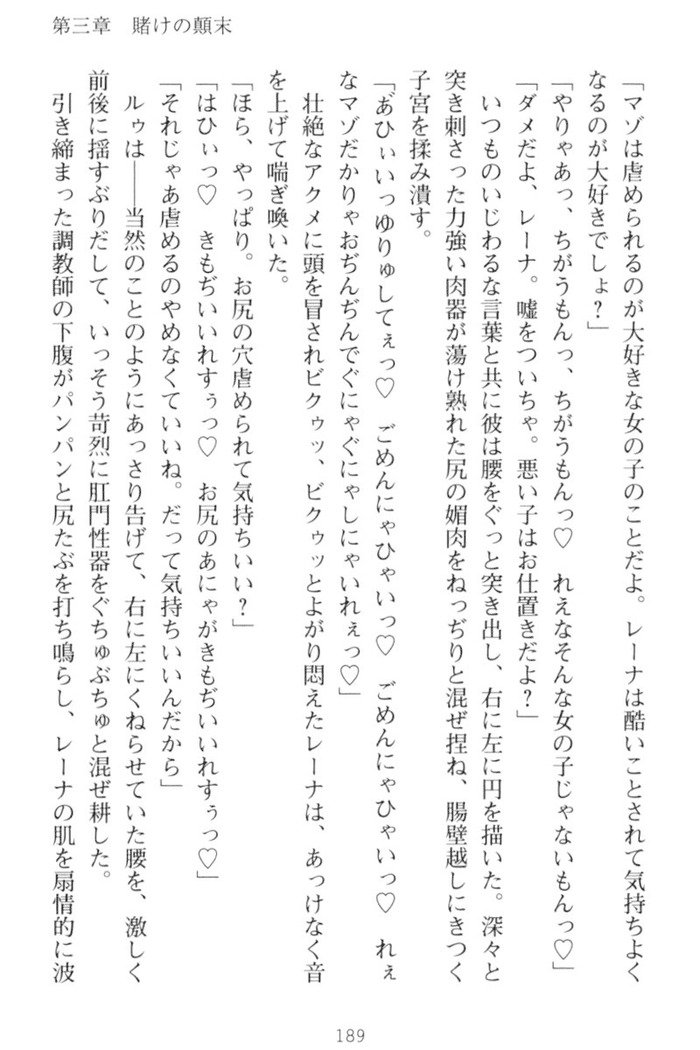 第三章　賭けの顛末
「マゾは虐められるのが大好きな女の子のことだよ。レーナは酷いことされて気持ちよく
なるのが大好きでしょ?」
「やりゃあっ、ちがうもんっ、ちがうもんっ♡　れえなそんな女の子じゃないもんっ♡」
「ダメだよ、レーナ。嘘をついちゃ。悪い子はお仕置きだよ?」
　いつものいじわるな言葉と共に彼は腰をぐっと突き出し、右に左に円を描いた。深々と
突き刺さった力強い肉器が蕩け熟れた尻の媚肉をねっぢりと混ぜ捏ね、腸壁越しにきつく
子宮を揉み潰す。
「あ゛ひぃいっゆりゅしてぇっ♡　ごめんにゃひゃいっ♡　ごめんにゃひゃいっ♡　れぇ
なマゾだかりゃおぢんぢんでぐにゃぐにゃしにゃいれぇっ♡」
　壮絶なアクメに頭を冒されビクゥッ、ビクゥッとよがり悶えたレーナは、あっけなく音
を上げて喘ぎ喚いた。
「ほら、やっぱり。お尻の穴虐められて気持ちいい?」
「はひぃっ♡　きもぢいいれすぅっ♡　お尻のあにゃがきもぢいいれすぅっ♡」
「それじゃあ虐めるのやめなくていいね。だって気持ちいいんだから」
　ルゥは――当然のことのようにあっさり告げて、右に左にくねらせていた腰を、激しく
前後に揺すぶりだして、いっそう苛烈に肛門性器をぐちゅぶちゅと混ぜ耕した。
　引き締まった調教師の下腹がパンパンと尻たぶを打ち鳴らし、レーナの肌を扇情的に波
189